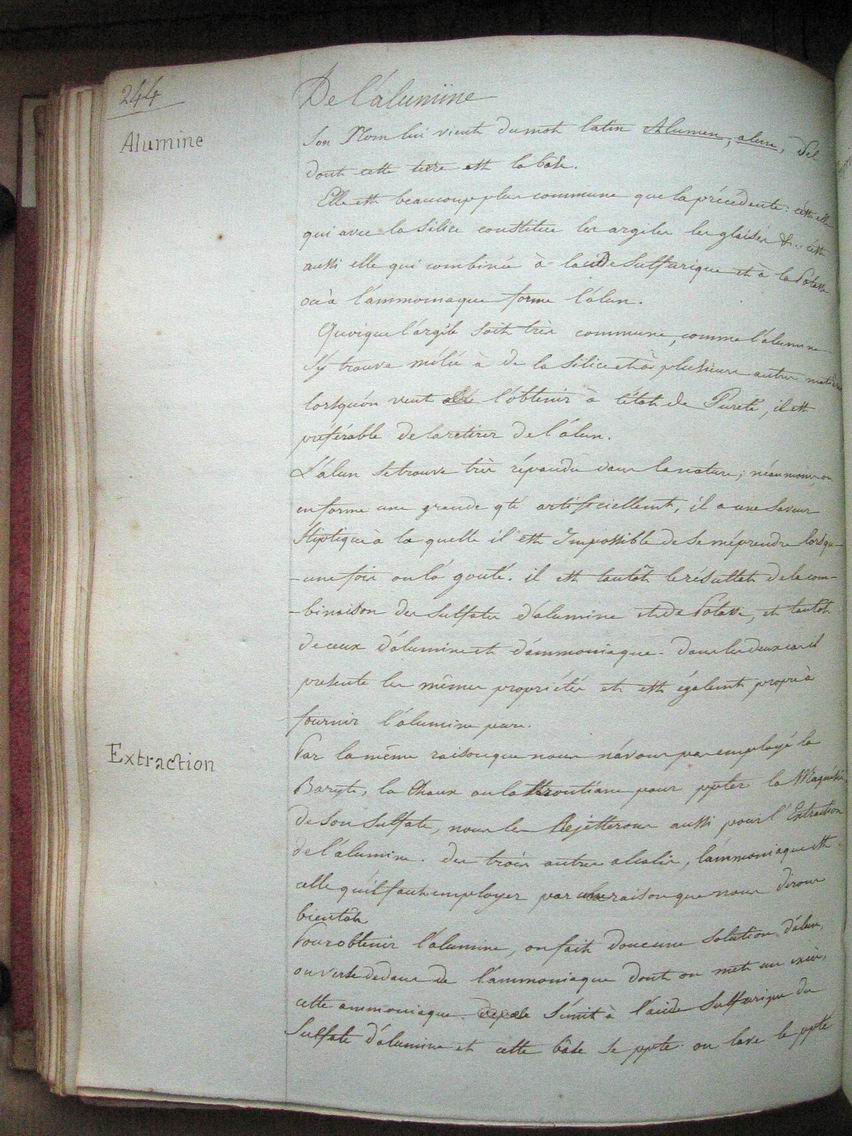 244
De l'alumine
Alumine
Son Nom lui vient du mot latin Alumen, alun, Sel
dont cette terre est la base.
Elle est beaucoup plus commune que la précédente. c'est elle
qui avec la Silice constitue les argiles les glaises &.. c'est
aussi elle qui combinée à l'acide Sulfurique et à la Potasse
ou à l'ammoniaque forme l'alun.
Quoique l'argile soit très commune, comme l'alumine
s'y trouve mêlée à de la Silice et à plusieurs autres matières
lorsqu'on veut l'obtenir à l'état de Pureté, il est
préférable de la retirer de l'alun.
L'alun se trouve très répandu dans la nature; néanmoins on
en forme une grande qté artificiellemt, il a une Saveur
Stiptique à la quelle il est Impossible de se méprendre lorsqu-
-une fois on l'a gouté. il est tantôt le résultat de la com-
-binaison des Sulfates d'alumine et de Potasse, et tantôt
de ceux d'alumine et d'ammoniaque. Dans les deux cas il
présente les mêmes propriétés et est égalemt propre à
fournir l'alumine pure.
Extraction
Par la même raison que nous n'avons pas employé la
Baryte, la Chaux ou la Strontiane pour ppter la Magnésie
de son Sulfate, nous les Rejetterons aussi pour l'Extraction
de l'alumine. des trois autres alcalis, l'ammoniaque est
celle qu'il faut employer par une raison que nous dirons
bientôt
Pour obtenir l'alumine, on fait donc une solution d'alun,
on verse dedans de l'ammoniaque dont on met un excès,
cette ammoniaque S'unit à l'acide Sulfurique du
Sulfate d'alumine et cette bâse se ppte. on lave le ppté